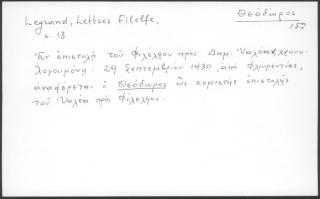 Legrand, Lettres Filelfe,
σ. 13
Θεόδωρος
15ον
Ἐν ἐπιστολῇ τοῦ Φιλέλφου πρὸς Δημ. Ὑαλέα, χρονο-
λογουμένη: 29 Σεπτεμβρίου 1430, ἀπὸ Φλωρεντίας,
ἀναφέρεται ὁ Θεόδωρος ὡς κομιστὴς ἐπιστολῆς
τοῦ Ὑαλέα πρὸς Φιλέλφον.